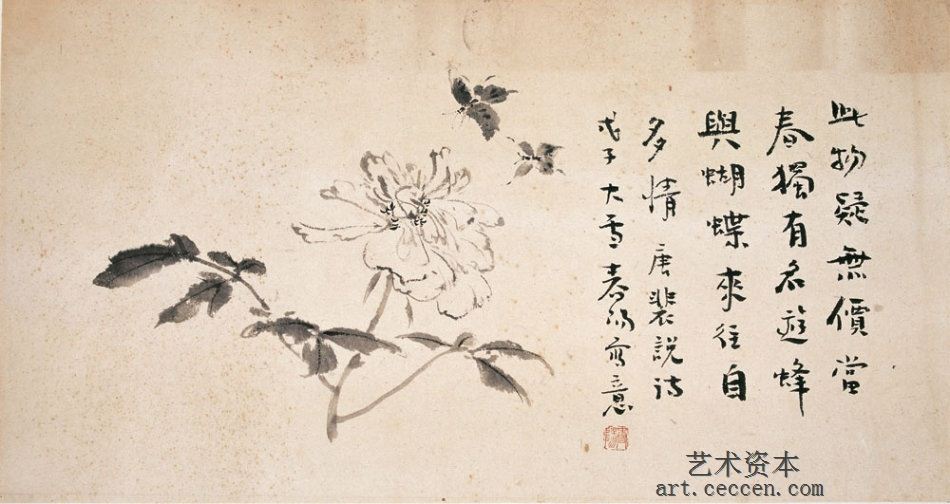 此物疑無價當
春獨有名遊蜂
與蝴蝶來往自
多情 唐裴説詩
戊子大雪寫意
艺术资本
art.ceccen.com